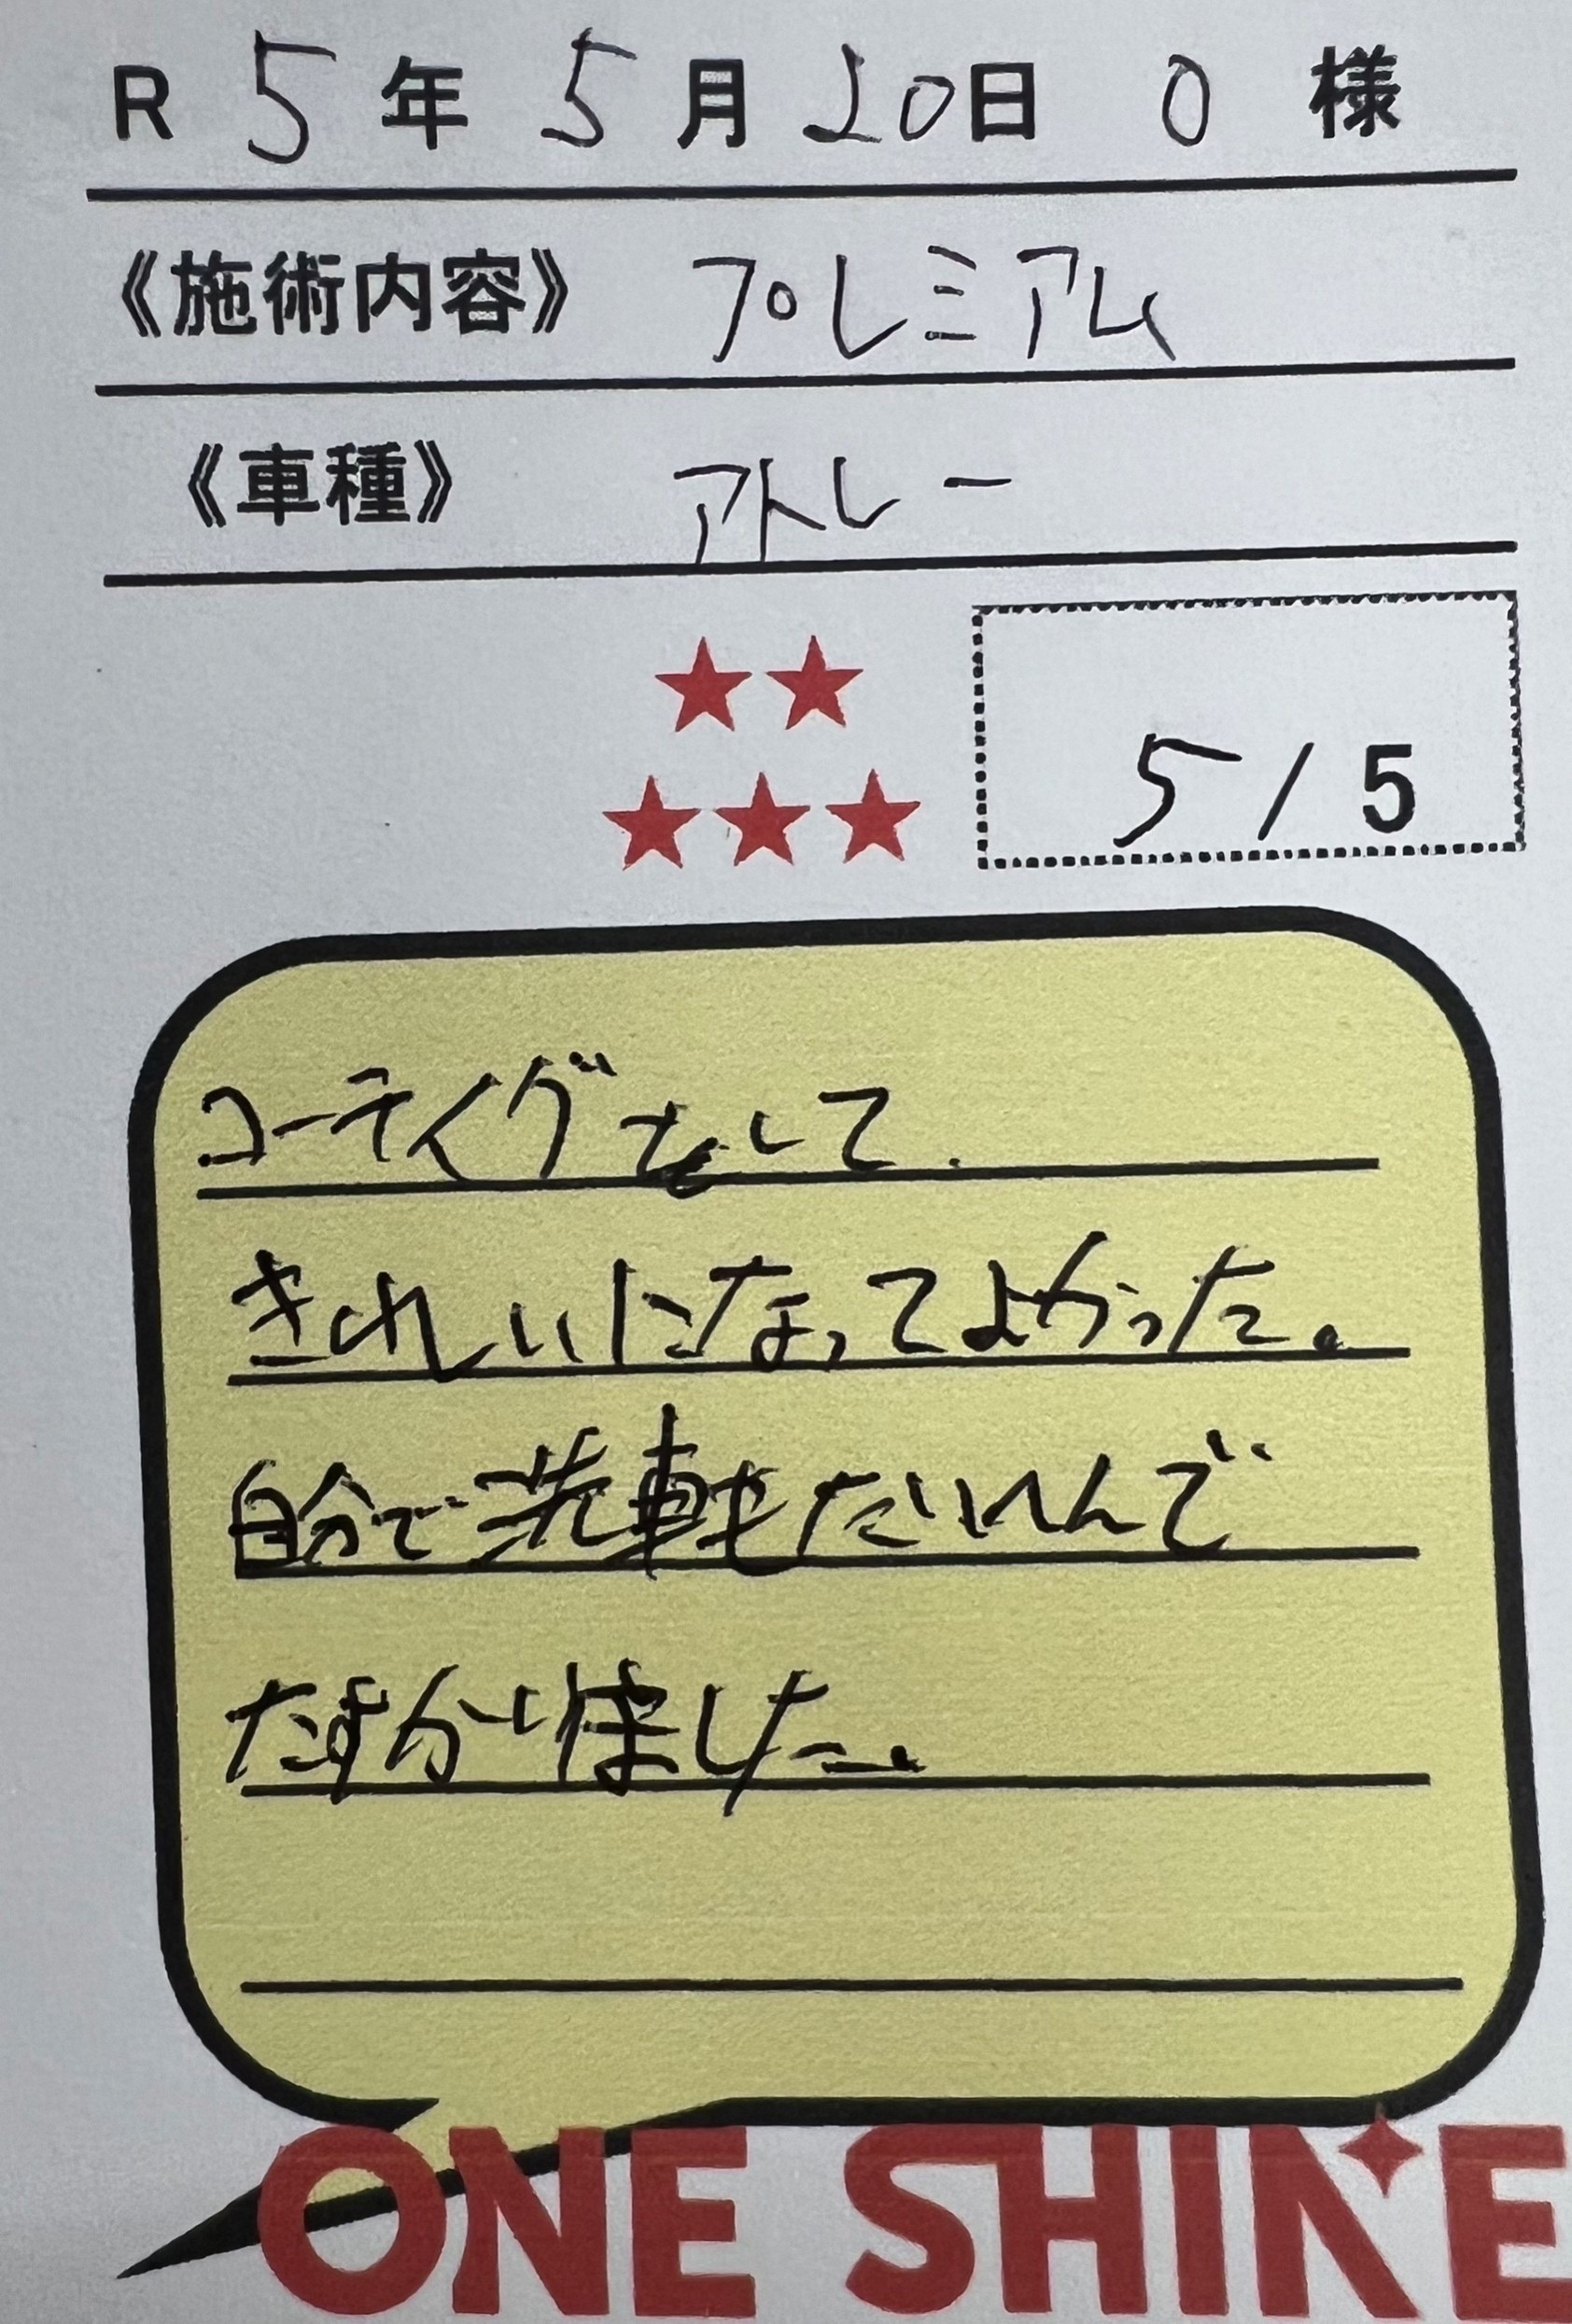 R 5 年 5 月 20日 O 様
《施術内容》 プレミアム
《車種》 アトレー
5 / 5
コーティグをして.
きれいになってよかった。
自分で洗車もたいへんで
たすかりました。
ONE SHINE